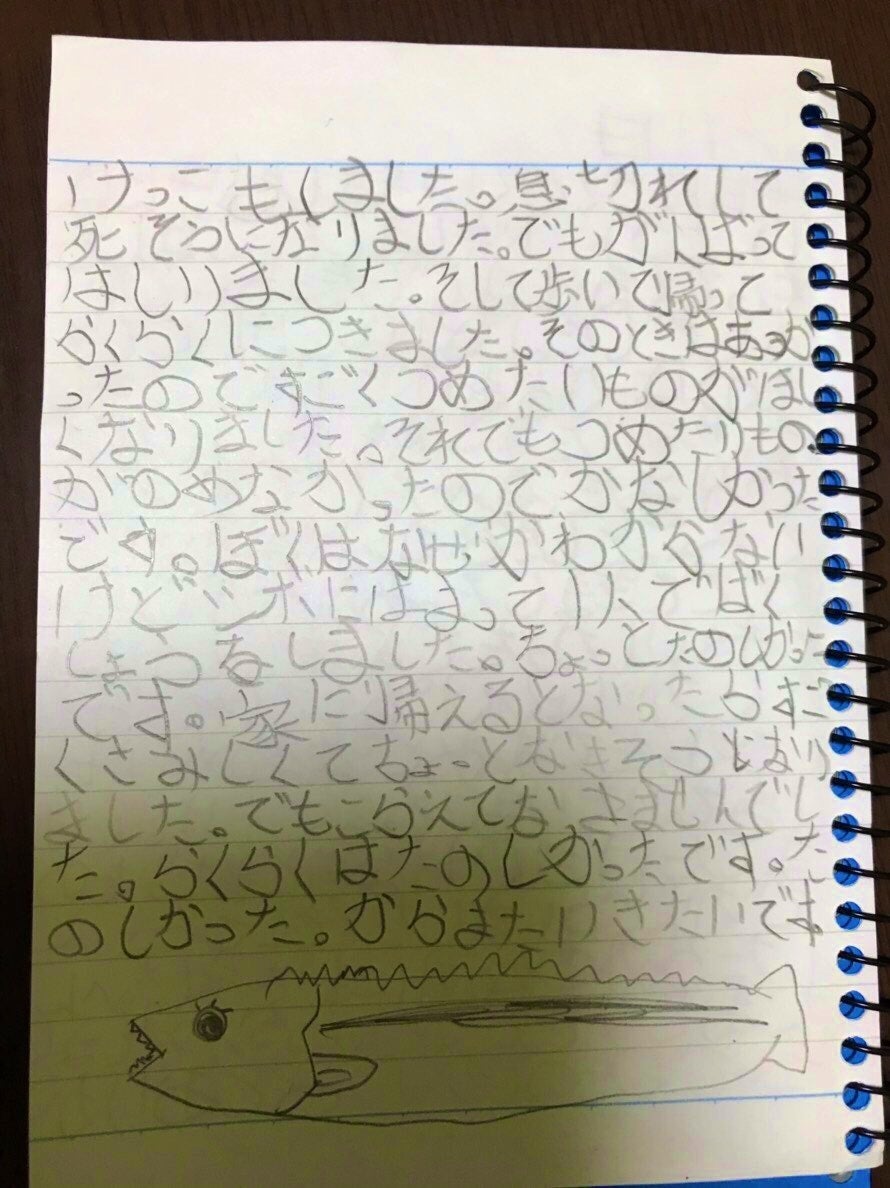 けっこもしました。息切れして
死そうになりました。でもがんばって
はしりました。そして歩いで帰って
らくらくにつきました。そのときはあつか
ったのですごくつめたいものがほし
くなりました。それでもつめたいもの
がのめなかったのでかなしかった
です。ぼくはなぜかわからない
けど
しょうをしました。ちょっとたのしかった
です。家に帰えるとなったらすご
くさみしくてちょっとなきそうになり
ました。でもこらえてなきませんでし
た。らくらくはたのしかったです。た
のしかった。からまたいきたいです。